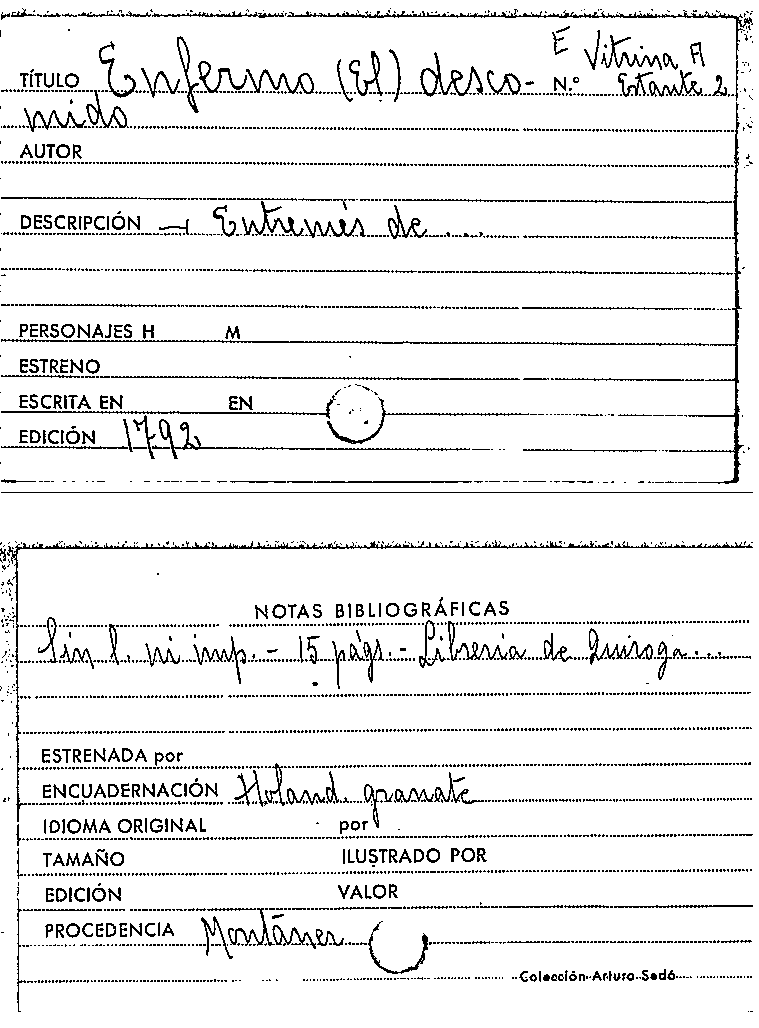 E Vitrina A
TÍTULO Enfermo (El) desco- N.º Estante 2
mido
AUTOR
DESCRIPCIÓN — Entremés de ...
PERSONAJES H M
ESTRENO
ESCRITA EN EN
EDICIÓN 1792
NOTAS BIBLIOGRÁFICAS
Sin l. ni imp. - 15 págs. - Librería de Quiroga...
ESTRENADA por
ENCUADERNACIÓN Holand. granate
IDIOMA ORIGINAL por
TAMAÑO ILUSTRADO POR
EDICIÓN VALOR
PROCEDENCIA Montáner
Colección Arturo Sedó